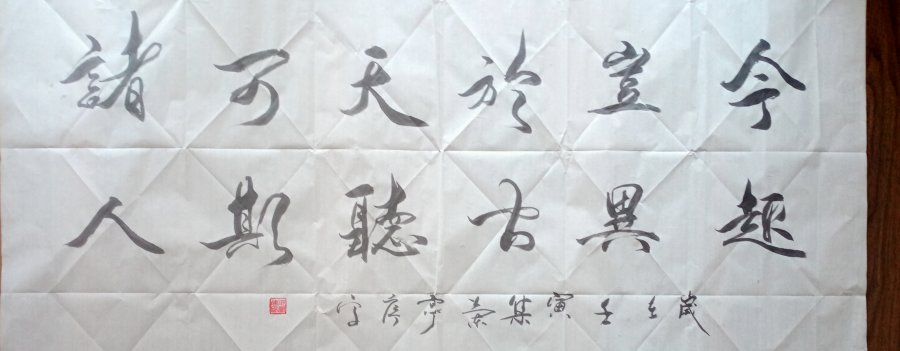 今趣
豈異
於古
天聽
可期
諸人
歲在壬寅集蘭亭序字